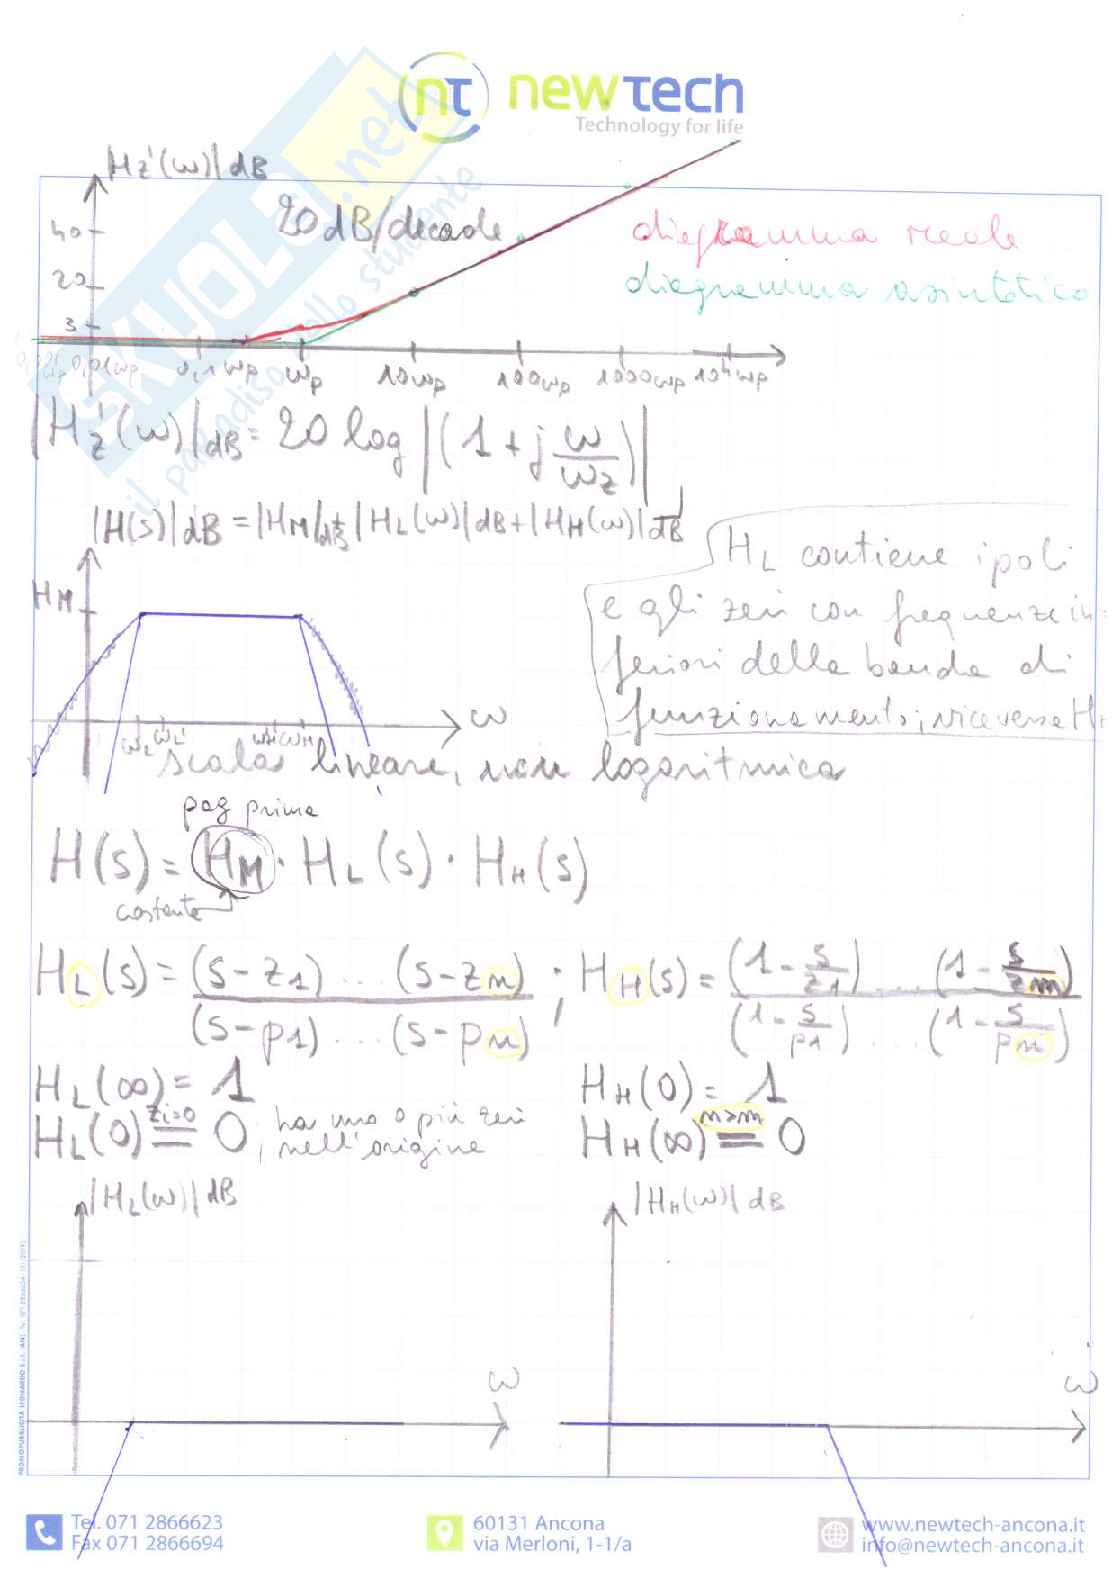 nτ newtech
Technology for life
SKUOLA.net
il paradiso dello studente
|Hz'(ω)| dB
40
20 dB/decade
diagramma reale
20
diagramma asintotico
3
0,01ωp 0,1ωp ωp 10ωp 100ωp 1000ωp 10⁴ωp
|Hz'(ω)|dB = 20 log |(1 + j ω/ωz)|
|H(s)|dB = |HM|dB + |HL(ω)|dB + |HH(ω)|dB
HL contiene i poli
e gli zeri con frequenze in=
feriori della banda di
funzionamento; viceversa HH
HM
ω
ωL ωL' ωH' ωH
scala lineare, non logaritmica
pag prima
H(s) = HM · HL(s) · HH(s)
costante
HL(s) = (s-z1) ... (s-zm) / (s-p1) ... (s-pn) ; HH(s) = (1 - s/z1) ... (1 - s/zm) / (1 - s/p1) ... (1 - s/pn)
HL(∞) = 1
HH(0) = 1
HL(0) zi=0 = 0; ha uno o più zeri
nell'origine
HH(∞) n>m = 0
|HL(ω)| dB
|HH(ω)| dB
ω
ω
Tel. 071 2866623
Fax 071 2866694
60131 Ancona
via Merloni, 1-1/a
www.newtech-ancona.it
info@newtech-ancona.it